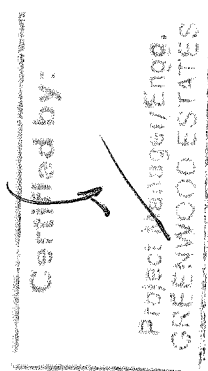 Certified by:
Project Manager/Engg.
GREENWOOD ESTATES